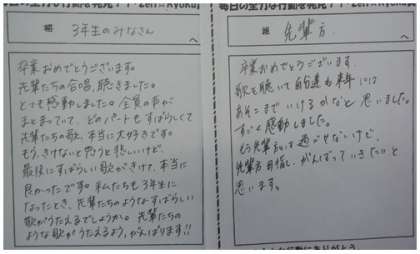 3年生のみなさん
へ
卒業おめでとうございます。
先輩たちの合唱、聴きました。
とっても感動しました。全員の声が
まとまっていて、どのパートもすばらしくて
先輩たちの歌、本当に大好きです。
もう、きけないと思うと悲しいけど、
最後にすばらしい歌がきけて、本当に
良かったです。私たちも3年生に
なったとき、先輩たちのようなすばらしい
歌がうたえるでしょうか。先輩たちの
ような歌がうたえるよう、がんばります!!
先輩方
へ
卒業おめでとうございます。
歌を聴いて自分達も来年には
あそこまでいけるかなと思いました。
すごく感動しました。
もう先輩方とは過ごせないけど、
先輩方目指し、がんばっていきたいと
思います。